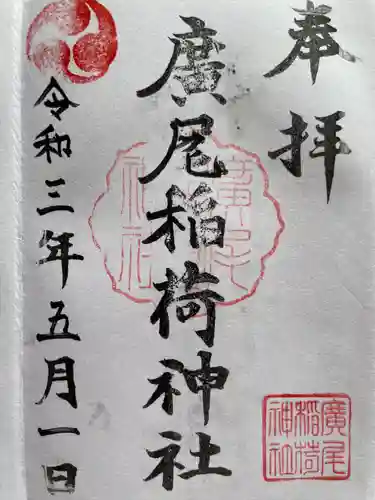 奉拝
廣尾稲荷神社
令和三年五月一日
廣尾
稲荷
神社
廣尾
神社